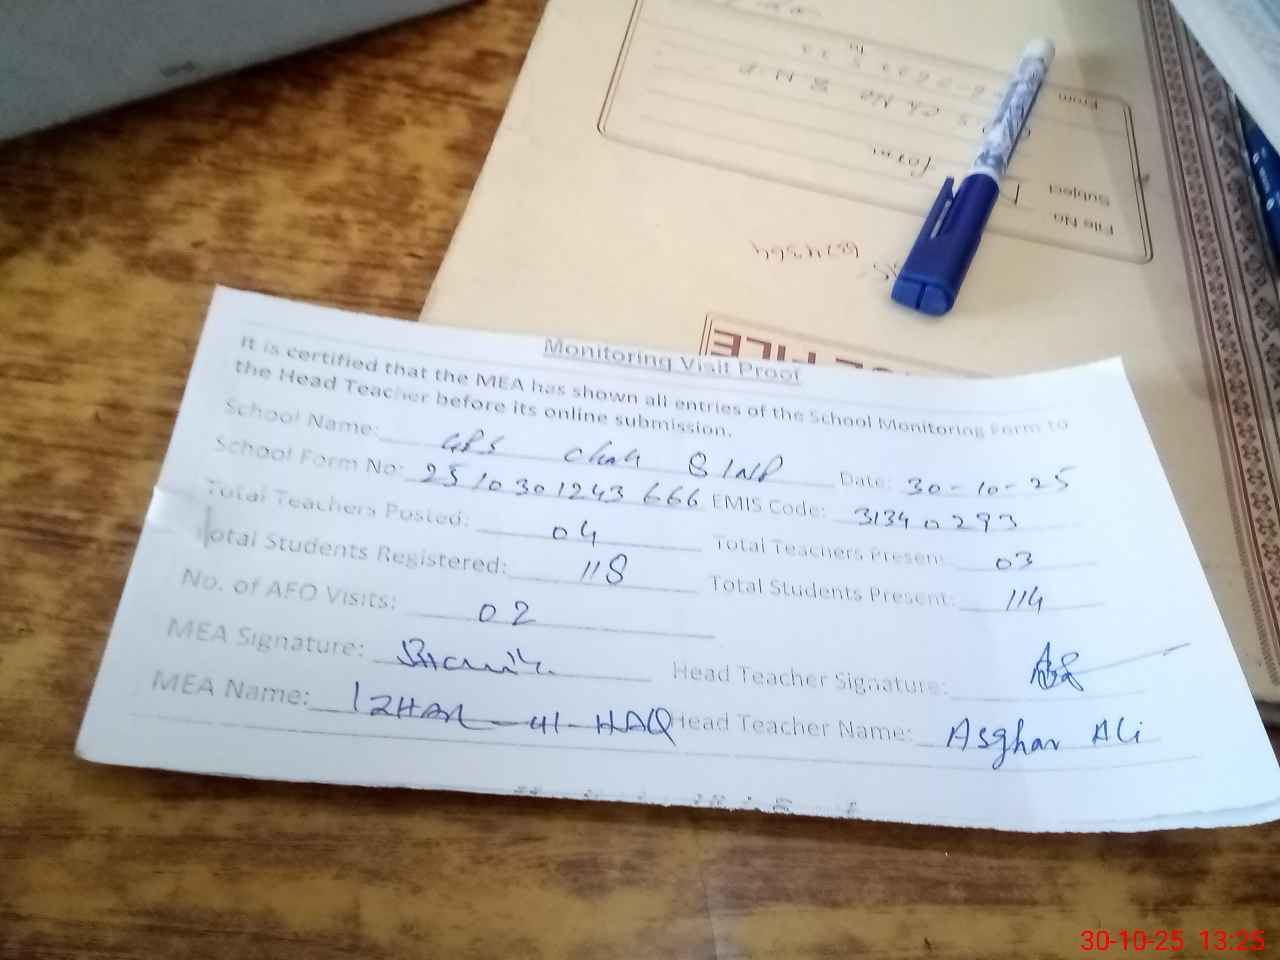 From
Subject
File No.
form
Monitoring Visit Proof
It is certified that the MEA has shown all entries of the School Monitoring Form to
the Head Teacher before its online submission.
School Name: GPS Chak 8 1NP Date: 30-10-25
School Form No: 2510301243666 EMIS Code: 31340293
Total Teachers Posted: 04 Total Teachers Present: 03
Total Students Registered: 118 Total Students Present: 114
No. of AFO Visits: 02
MEA Signature: Head Teacher Signature:
MEA Name: IZHAR-ul-HAQ Head Teacher Name: Asghar Ali
30-10-25 13:25